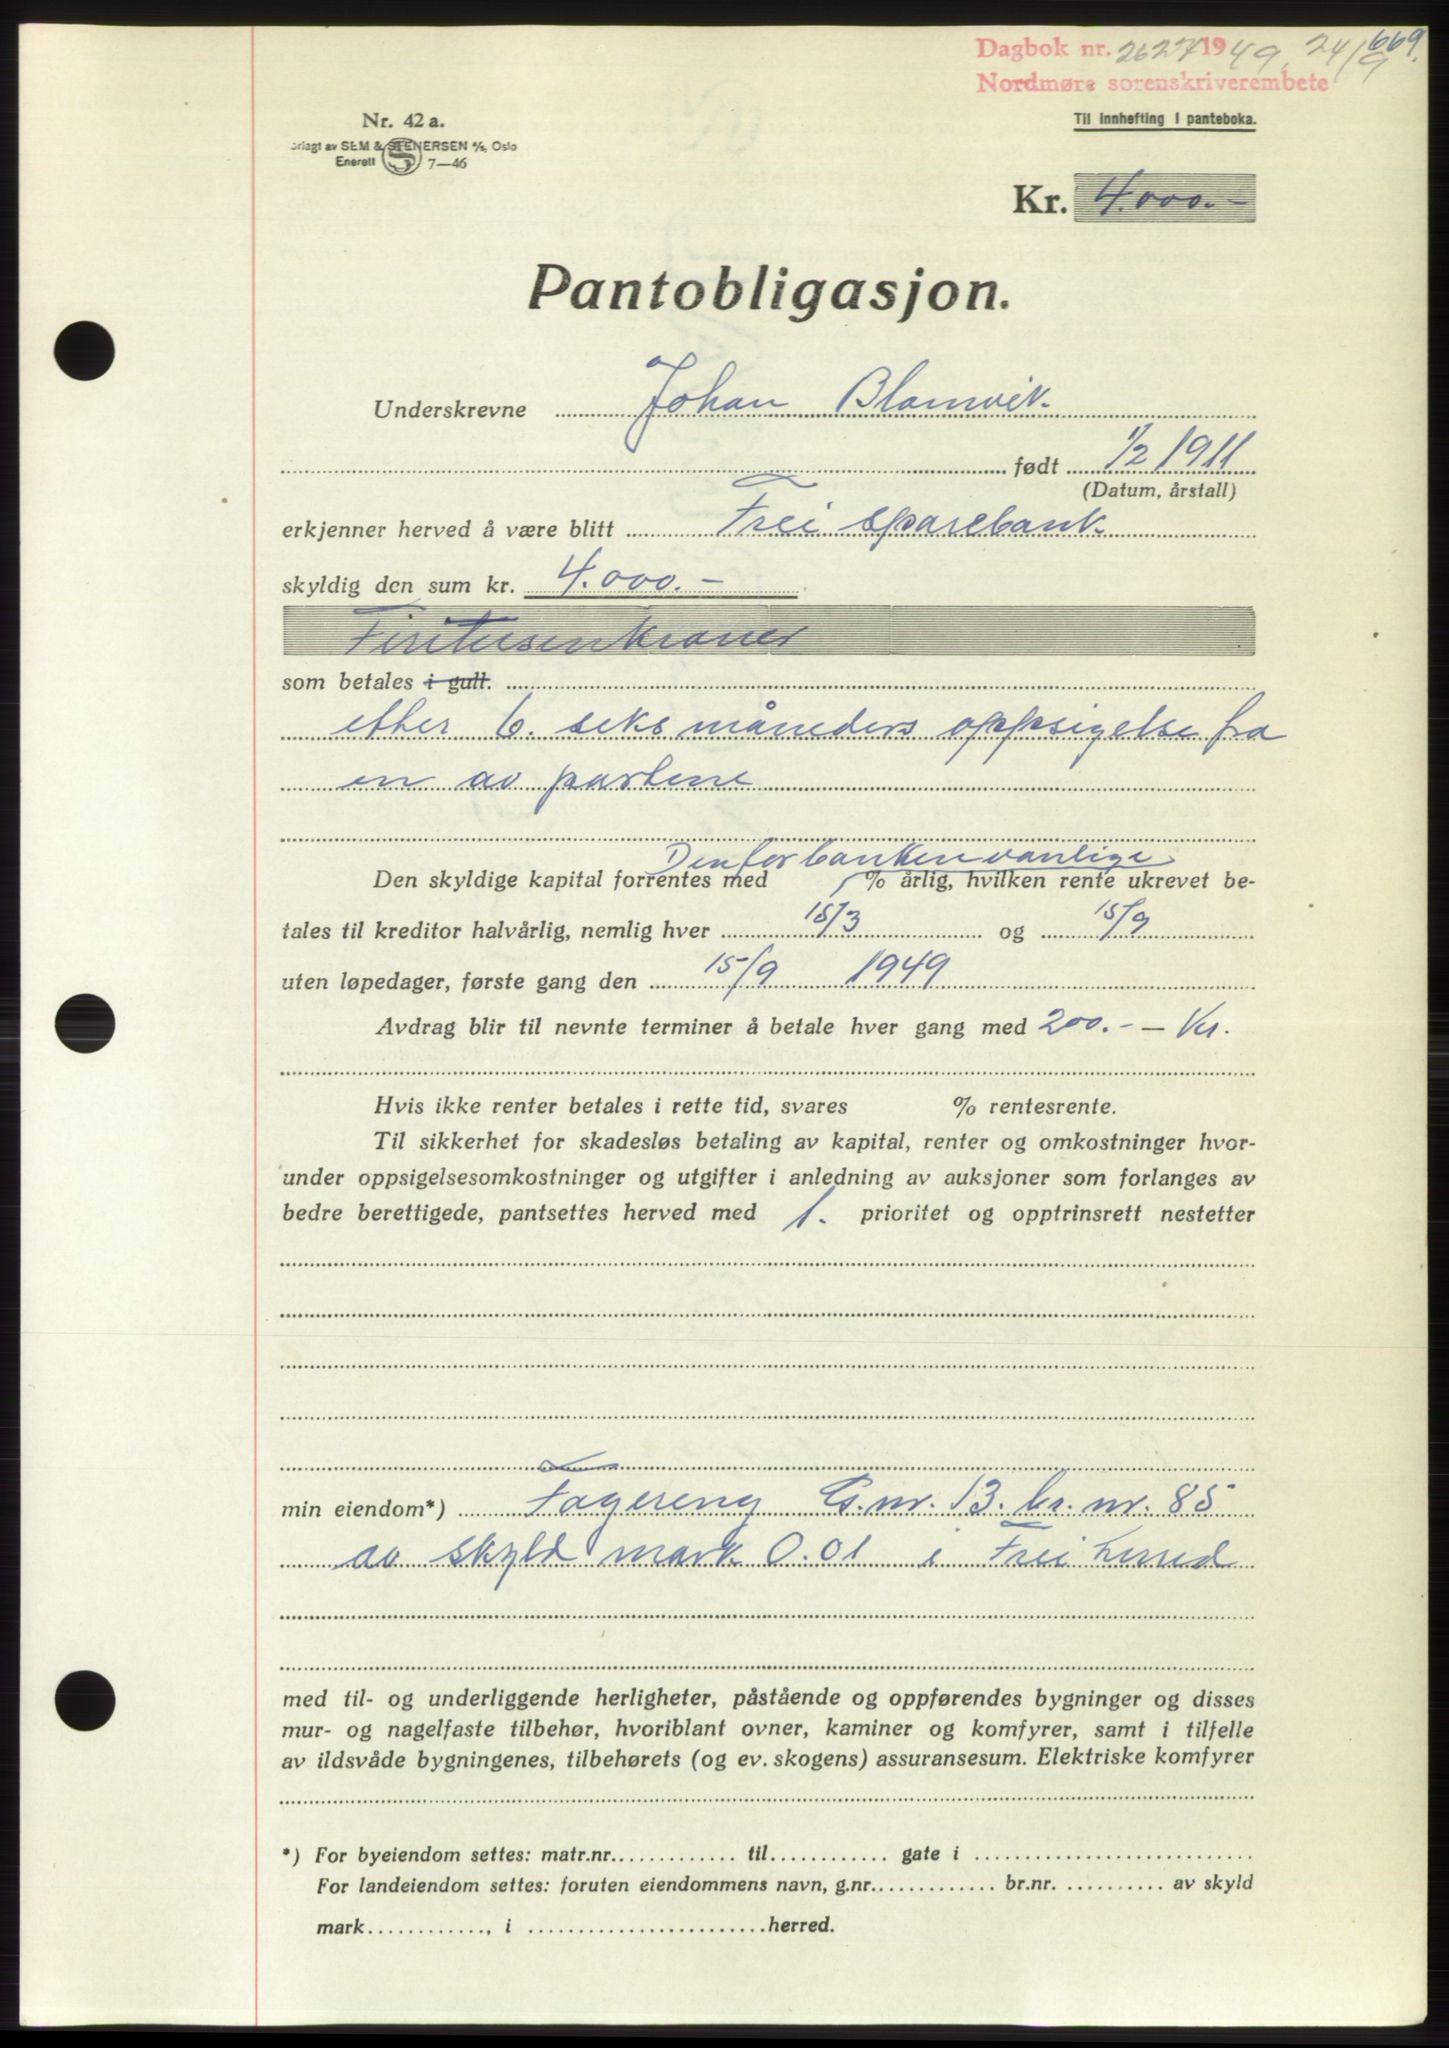 669.
Dagbok nr. 2627 1949, 24/9
Nordmøre sorenskriverembete
Nr. 42 a.
Til innhefting i panteboka.
orlagt av SEM & STENERSEN A/S, Oslo
Enerett S 7—46
Kr. 4.000.-
Pantobligasjon.
Underskrevne Johan Blomvik.
født 1/2 1911
(Datum, årstall)
erkjenner herved å være blitt Frei sparebank
skyldig den sum kr. 4.000.-
Firitusenkroner
som betales i gull.
etter 6. seks måneders oppsigelse fra
en av partene
Den for banken vanlige
Den skyldige kapital forrentes med % årlig, hvilken rente ukrevet be-
tales til kreditor halvårlig, nemlig hver 15/3 og 15/9
uten løpedager, første gang den 15/9 1949
Avdrag blir til nevnte terminer å betale hver gang med 200.- — Kr.
Hvis ikke renter betales i rette tid, svares % rentesrente.
Til sikkerhet for skadesløs betaling av kapital, renter og omkostninger hvor-
under oppsigelsesomkostninger og utgifter i anledning av auksjoner som forlanges av
bedre berettigede, pantsettes herved med 1. prioritet og opptrinsrett nestetter
min eiendom*) Fagereng G.nr. 13. br. nr. 85
av skyld mark 0.01 i Frei herred
med til- og underliggende herligheter, påstående og oppførendes bygninger og disses
mur- og nagelfaste tilbehør, hvoriblant ovner, kaminer og komfyrer, samt i tilfelle
av ildsvåde bygningenes, tilbehørets (og ev. skogens) assuransesum. Elektriske komfyrer
*) For byeiendom settes: matr.nr. til. gate i
For landeiendom settes: foruten eiendommens navn, g.nr. br.nr. av skyld
mark , i herred.